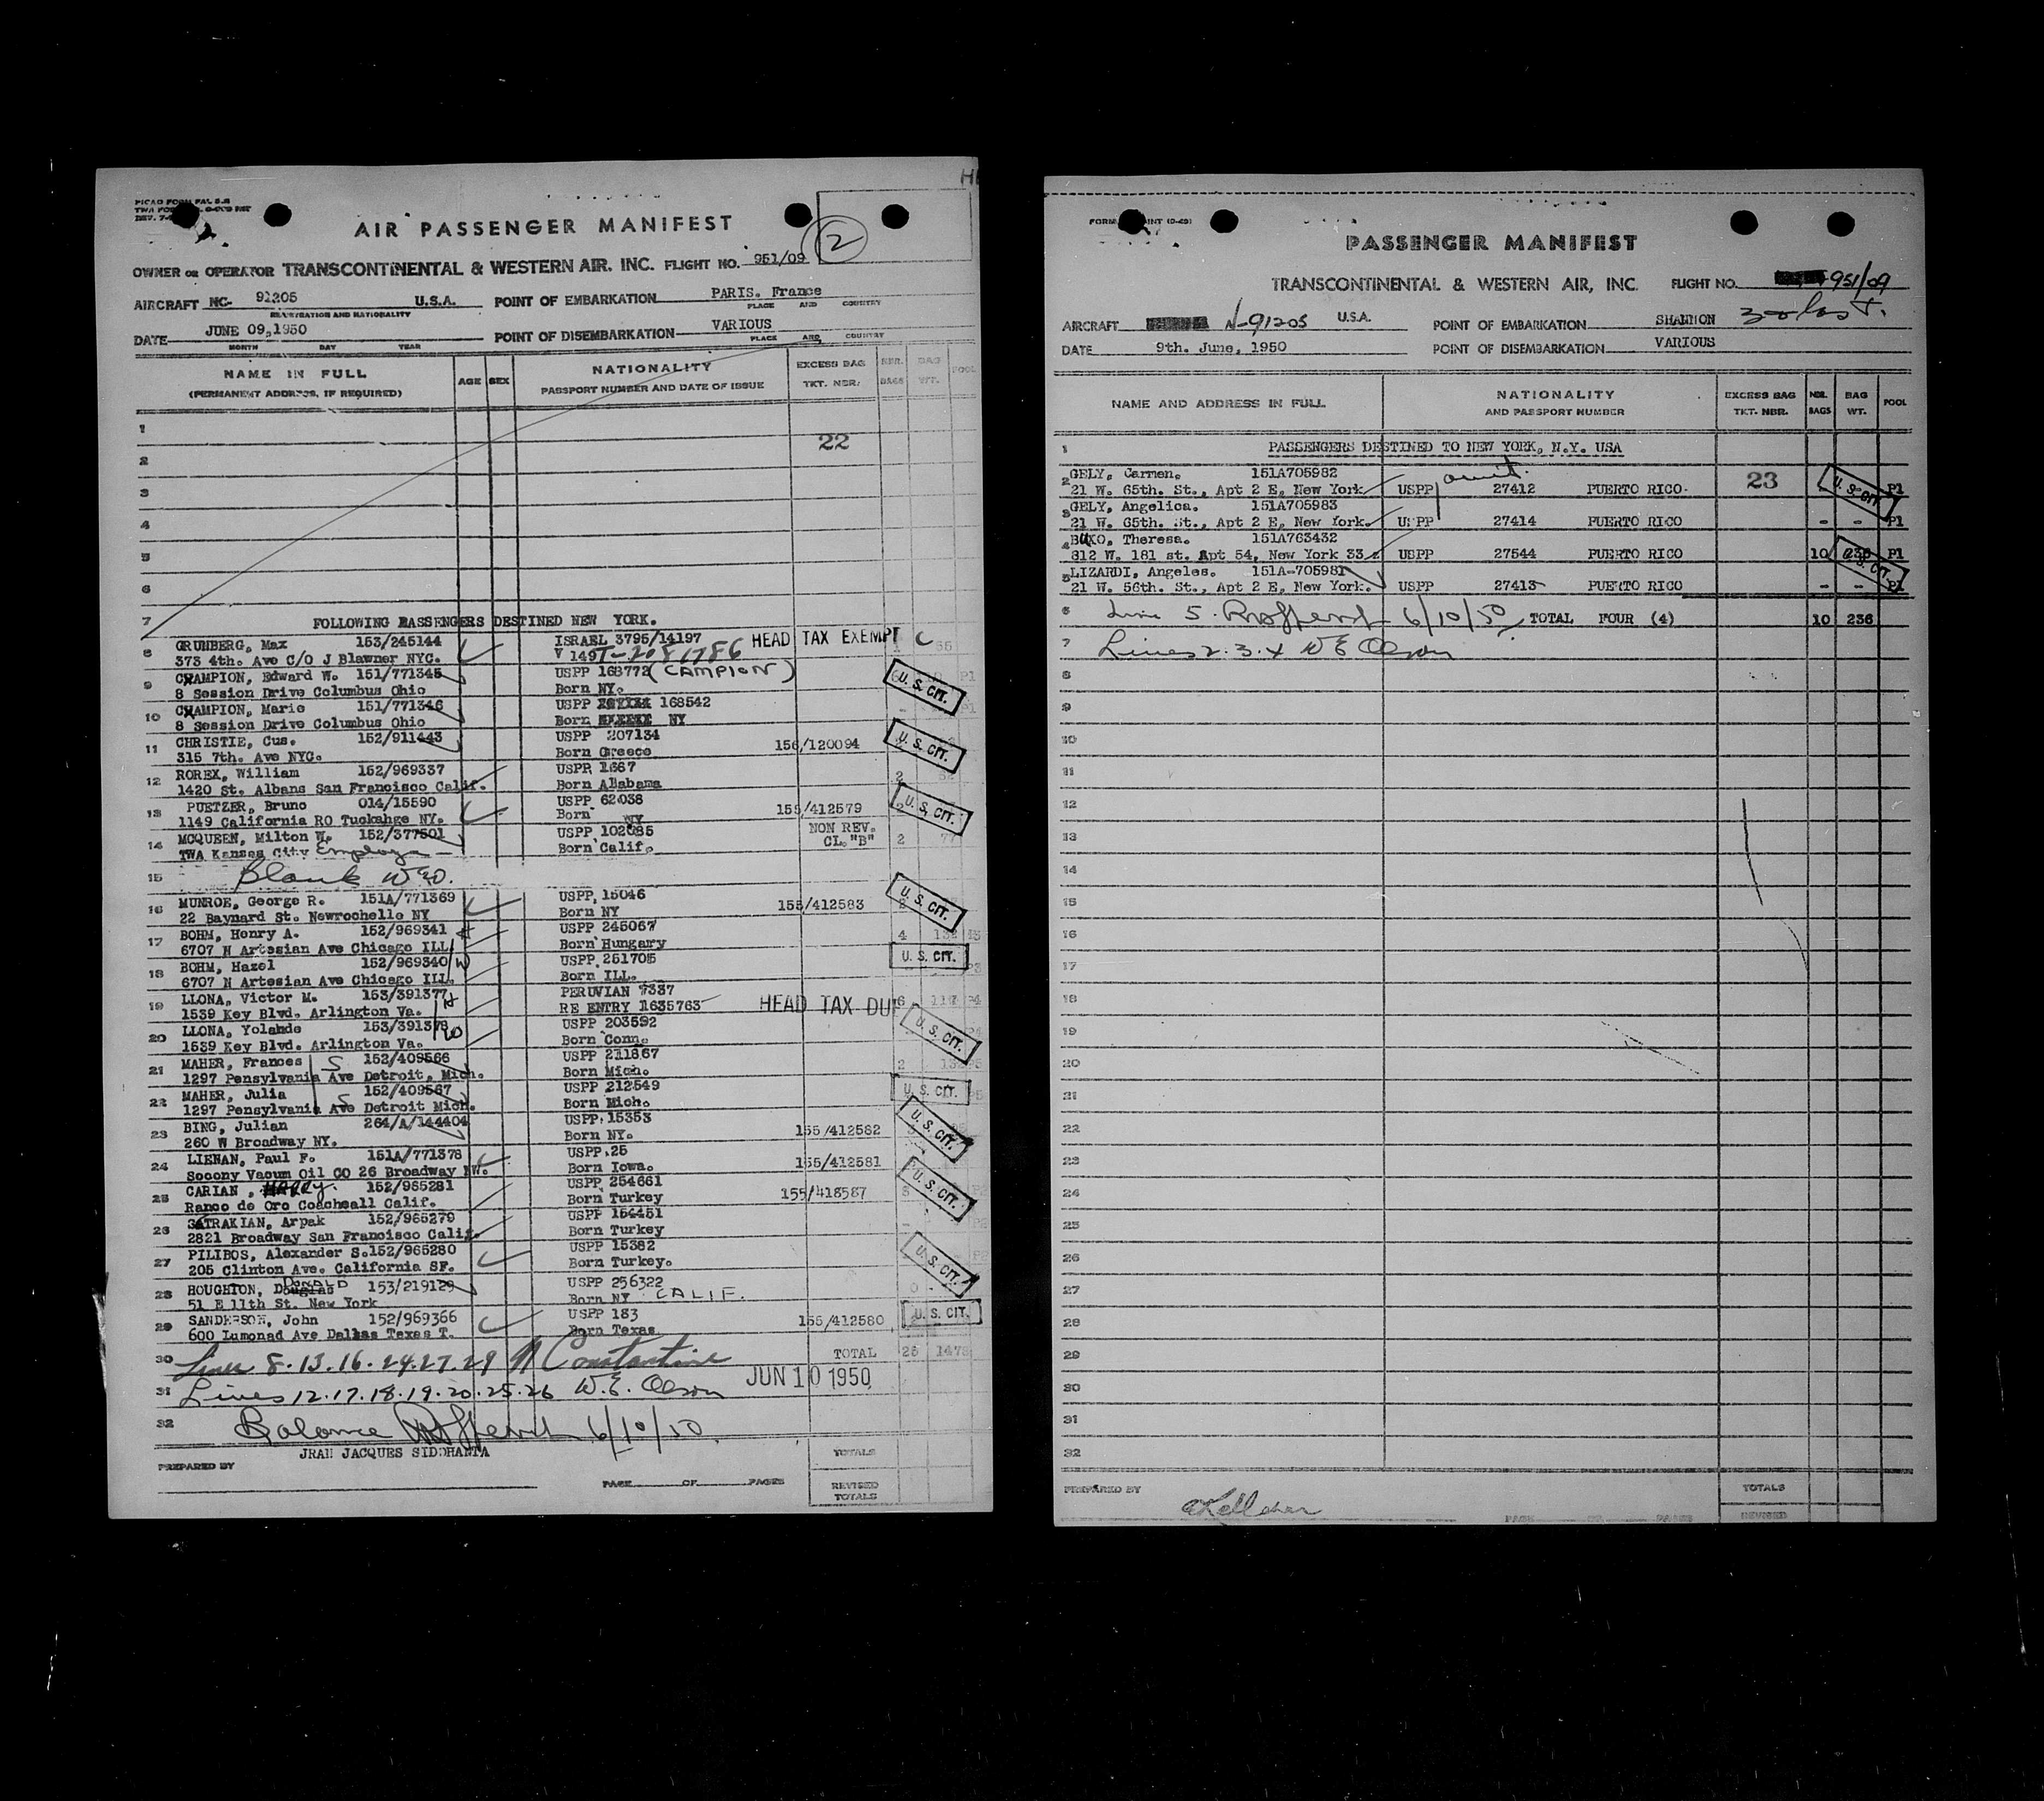 AIR PASSENGER MANIFEST
2
OWNER OR OPERATOR TRANSCONTINENTAL & WESTERN AIR. INC. FLIGHT NO. 951/09
AIRCRAFT NC- 91205 U.S.A. POINT OF EMBARKATION PARIS. France
REGISTRATION AND NATIONALITY PLACE AND COUNTRY
DATE JUNE 09,1950 POINT OF DISEMBARKATION VARIOUS
MONTH DAY YEAR PLACE AND COUNTRY
NAME IN FULL AGE SEX NATIONALITY EXCESS BAG NBR. BAG POOL
(PERMANENT ADDRESS, IF REQUIRED) PASSPORT NUMBER AND DATE OF ISSUE TKT. NBR. BAGS WT.
1
22
2
3
4
5
6
7 FOLLOWING PASSENGERS DESTINED NEW YORK.
8 GRUMBERG, Max 153/245144 ISRAEL 3795/14197 HEAD TAX EXEMPT
373 4th. Ave C/O J Blawner NYC. V 149T-2081786
9 CHAMPION, Edward W. 151/771345 USPP 168772 (CAMPION)
8 Session Drive Columbus Ohio Born NY. U. S. CIT.
10 CHAMPION, Marie 151/771346 USPP 168542
8 Session Drive Columbus Ohio Born NY
11 CHRISTIE, Cus. 152/911443 USPP 207134 156/120094 U. S. CIT.
315 7th. Ave NYC. Born Greece
12 ROREX, William 152/969337 USPP 1667 2
1420 St. Albans San Francisco Calif. Born Alabama
13 PUETZER, Bruno 014/15590 USPP 62038 155/412579 U. S. CIT.
1149 California RO Tuckahge NY. Born NY
14 MCQUEEN, Milton W. 152/377501 USPP 102085 NON REV. 2 77
TWA Kansas City Employe Born Calif. CL. "B"
15 Blank WEO.
16 MUNROE, George R. 151A/771369 USPP 15046 155/412583 U. S. CIT.
22 Baynard St. Newrochelle NY Born NY
17 BOHM, Henry A. 152/969341 H USPP 245067 4
6707 N Artesian Ave Chicago ILL Born Hungary U. S. CIT.
18 BOHM, Hazel 152/969340 W USPP 251705
6707 N Artesian Ave Chicago ILL Born ILL.
19 LLONA, Victor M. 153/391377 H PERUVIAN 7337 HEAD TAX DUE
1539 Key Blvd. Arlington Va. RE ENTRY 1635763
20 LLONA, Yolande 153/391378 W USPP 203592 U. S. CIT.
1539 Key Blvd. Arlington Va. Born Conn.
21 MAHER, Frances S 152/409566 USPP 211867 2
1297 Pensylvania Ave Detroit, Mich. Born Mich.
22 MAHER, Julia S 152/409567 USPP 212549 U. S. CIT.
1297 Pensylvania Ave Detroit Mich. Born Mich.
23 BING, Julian 264/A/144404 USPP 15353 155/412582 U. S. CIT.
260 W Broadway NY. Born NY.
24 LIENAN, Paul F. 151A/771378 USPP 25 155/412581
Socony Vacum Oil CO 26 Broadway NW. Born Iowa.
25 CARIAN, HARRY. 152/965281 USPP 254661 155/418587 U. S. CIT.
Ranco de Oro Coacheall Calif. Born Turkey
26 SATRAKIAN, Arpak 152/965279 USPP 154451
2821 Broadway San Francisco Calif. Born Turkey
27 PILIBOS, Alexander S. 152/965280 USPP 15382 U. S. CIT.
205 Clinton Ave. California SF. Born Turkey.
28 HOUGHTON, DONALD 153/219129 USPP 256322
51 E 11th St. New York Born NY CALIF.
29 SANDERSON, John 152/969366 USPP 183 155/412580 U. S. CIT.
600 Lumonad Ave Dallas Texas T. Born Texas
30 Lines 8-13-16-24-27-29 N Constantine TOTAL 25 1478
31 Lines 12-17-18-19-20-25-26 W.E. Olson JUN 10 1950
32 Balance 6/10/50
JRAN JACQUES SIDDHANTA TOTALS
PREPARED BY PAGE OF PAGES REVISED TOTALS
PASSENGER MANIFEST
TRANSCONTINENTAL & WESTERN AIR, INC. FLIGHT NO. 951/09
AIRCRAFT N-91205 U.S.A. POINT OF EMBARKATION SHANNON
DATE 9th. June, 1950 POINT OF DISEMBARKATION VARIOUS
NAME AND ADDRESS IN FULL NATIONALITY EXCESS BAG NBR. BAG POOL
AND PASSPORT NUMBER TKT. NBR. BAGS WT.
1 PASSENGERS DESTINED TO NEW YORK, N.Y. USA
2 GELY, Carmen. 151A705982 23 U. S. CIT.
21 W. 65th. St., Apt 2 E, New York USPP 27412 PUERTO RICO. P1
3 GELY, Angelica. 151A705983
21 W. 65th. St., Apt 2 E, New York. USPP 27414 PUERTO RICO - - P1
4 BUXO, Theresa. 151A763432
812 W. 181 st. Apt 54, New York 33 USPP 27544 PUERTO RICO 10 236 P1
U. S. CIT.
5 LIZARDI, Angeles. 151A-705981
21 W. 56th. St., Apt 2 E, New York. USPP 27413 PUERTO RICO - - P1
6 Line 5. 6/10/50 TOTAL FOUR (4) 10 236
7 Lines 2.3.4 W E Olson
8
9
10
11
12
13
14
15
16
17
18
19
20
21
22
23
24
25
26
27
28
29
30
31
32
PREPARED BY TOTALS
PAGE OF PAGES REVISED